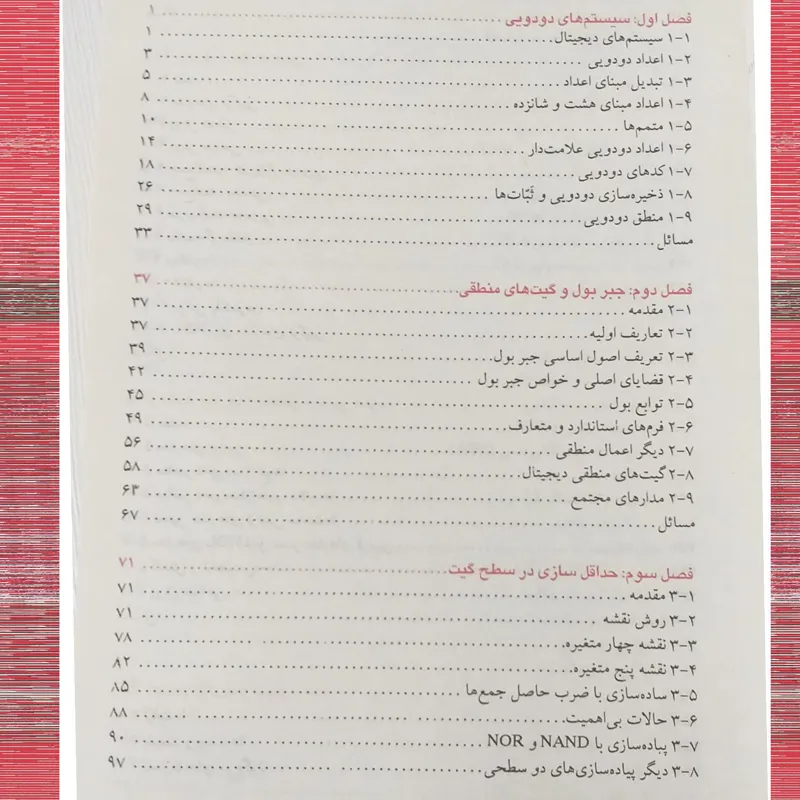 فصل اول: سیستم‌های دودویی ........ ۱
۱-۱ سیستم‌های دیجیتال ........ ۱
۱-۲ اعداد دودویی ........ ۳
۱-۳ تبدیل مبنای اعداد ........ ۵
۱-۴ اعداد مبنای هشت و شانزده ........ ۸
۱-۵ متمم‌ها ........ ۱۰
۱-۶ اعداد دودویی علامت‌دار ........ ۱۴
۱-۷ کدهای دودویی ........ ۱۸
۱-۸ ذخیره‌سازی دودویی و ثَبّات‌ها ........ ۲۶
۱-۹ منطق دودویی ........ ۲۹
مسائل ........ ۳۳
فصل دوم: جبر بول و گیت‌های منطقی ........ ۳۷
۲-۱ مقدمه ........ ۳۷
۲-۲ تعاریف اولیه ........ ۳۷
۲-۳ تعریف اصول اساسی جبر بول ........ ۳۹
۲-۴ قضایای اصلی و خواص جبر بول ........ ۴۲
۲-۵ توابع بول ........ ۴۵
۲-۶ فرم‌های استاندارد و متعارف ........ ۴۹
۲-۷ دیگر اعمال منطقی ........ ۵۶
۲-۸ گیت‌های منطقی دیجیتال ........ ۵۸
۲-۹ مدارهای مجتمع ........ ۶۳
مسائل ........ ۶۷
فصل سوم: حداقل سازی در سطح گیت ........ ۷۱
۳-۱ مقدمه ........ ۷۱
۳-۲ روش نقشه ........ ۷۱
۳-۳ نقشه چهار متغیره ........ ۷۸
۳-۴ نقشه پنج متغیره ........ ۸۲
۳-۵ ساده‌سازی با ضرب حاصل جمع‌ها ........ ۸۵
۳-۶ حالات بی‌اهمیت ........ ۸۸
۳-۷ پیاده‌سازی با NAND و NOR ........ ۹۰
۳-۸ دیگر پیاده‌سازی‌های دو سطحی ........ ۹۷